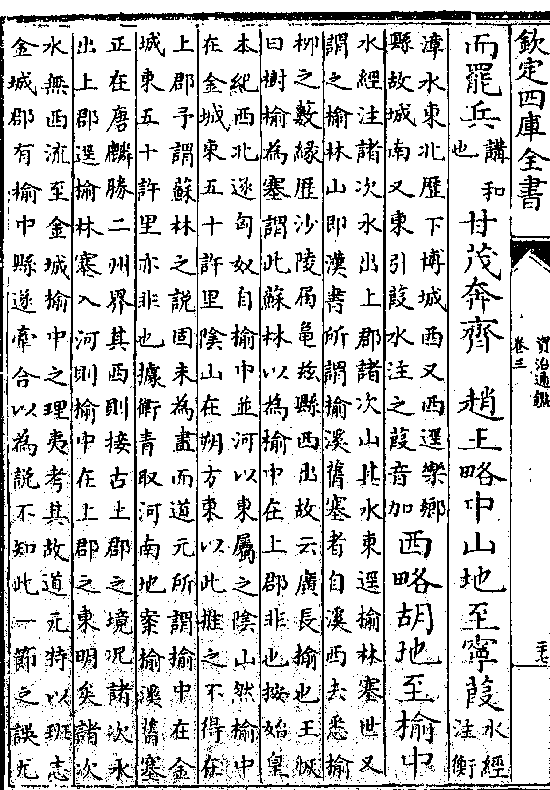 欽定四庫全書
資治通鑑
卷三
而罷兵講和也甘茂奔齊 趙王略中山地至寧葭水經注衡
漳水東北歷下博城西又西逕樂鄉
縣故城南又東引葭水注之葭音加
西略胡地至榆中
水經注諸次水出上郡諸次山其水東逕榆林塞世又
謂之榆林山即漢書所謂榆溪舊塞者自溪西去悉榆
柳之藪緣歷沙陵屆龜茲縣西出故云廣長榆也王恢
曰樹榆為塞謂此蘇林以為榆中在上郡非也按始皇
本紀西北逐匈奴自榆中並河以東屬之陰山然榆中
在金城東五十許里陰山在朔方東以此推之不得在
上郡予謂蘇林之說固未為盡而道元所謂榆中在金
城東五十許里亦非也據衛青取河南地案榆溪舊塞
正在唐麟勝二州界其西則接古上郡之境况諸次水
出上郡逕榆林塞入河則榆中在上郡之東明矣諸次
水無西流至金城榆中之理夷考其故道元特以班志
金城郡有榆中縣遂牽合以為說不知此一節之誤尤